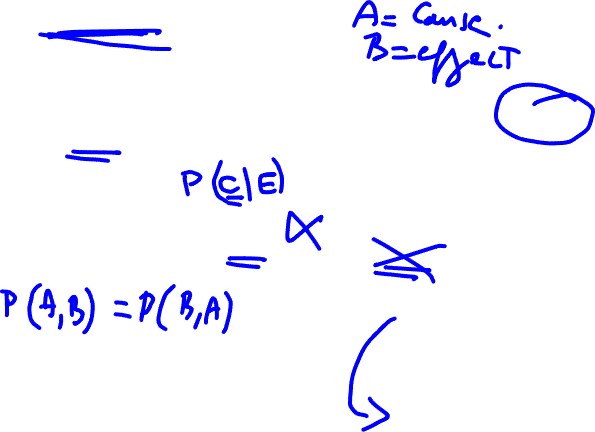 A = Cause.
B = effect
P(C|E)
∝
P(A,B) = P(B,A)